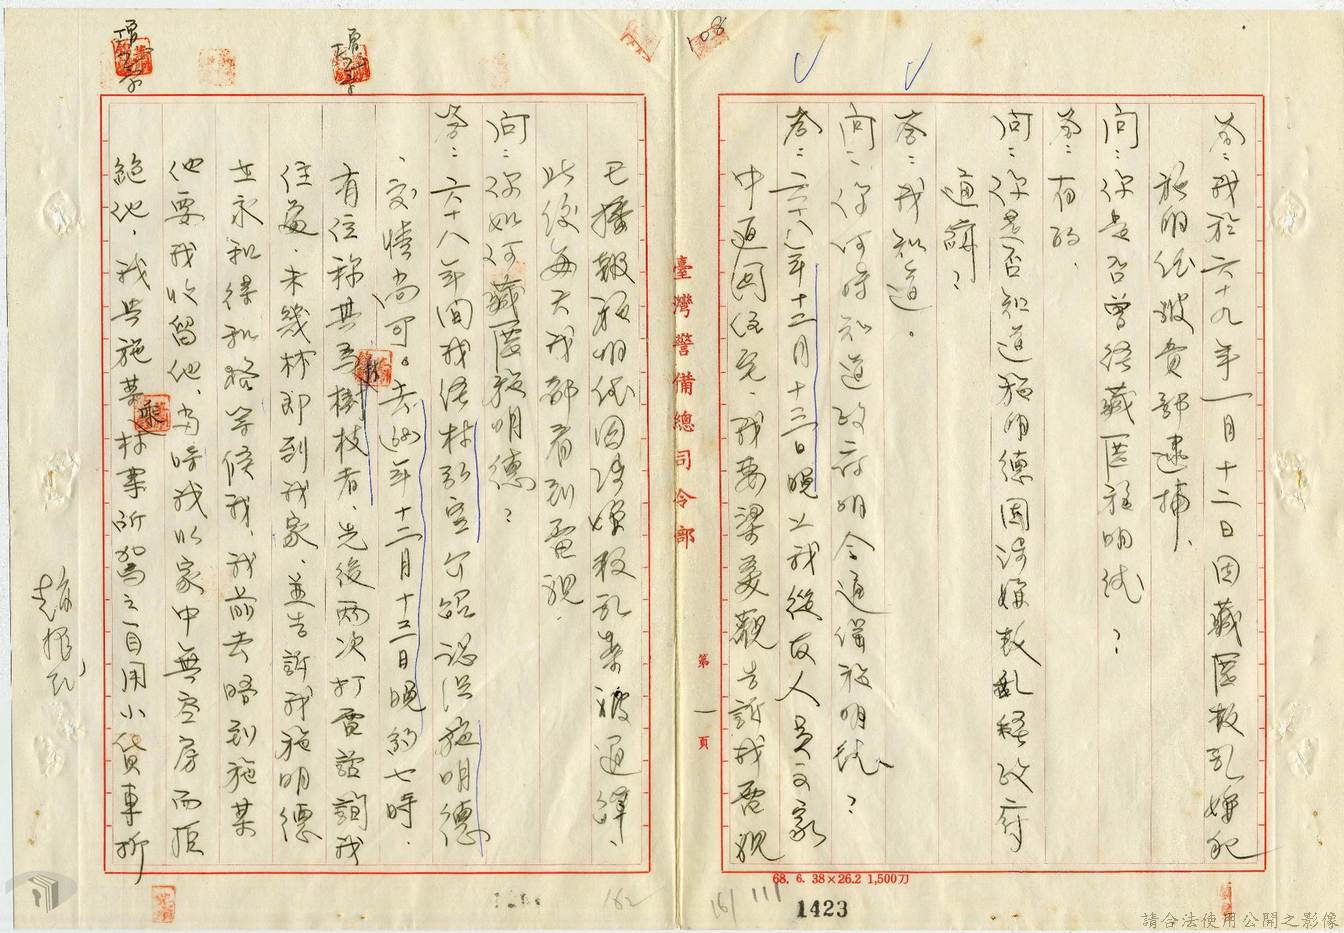 108
答：我於六十九年一月十二日因藏匿叛乱嫌犯
施明德被貴部逮捕、
問：你是否曾經藏匿施明德？
答：有的、
問：你是否知道施明德因涉嫌叛乱經政府
通緝？
答：我知道。
問：你何時知道政府明令通緝施明德？
答：六十八年十二月十三日晚上我從友人吳文家
中返回住宅、我妻梁美觀告訴我電視
臺灣警備總司令部
第一頁
68. 6. 38×26.2 1,500刀
1423
161
111
已播報施明德因涉嫌叛乱案被通緝、
此後每天我都看到電視、
問：你如何藏匿施明德？
答：六十八年間我經林弘宣介紹認識施明德
、交情尚可。去(68)年十二月十三日晚約七時、
有位稱其為樹枝者、先後兩次打電話詢我
住處、未幾林即到我家、並告訴我施明德
在永和得和路等候我、我前去晤到施某
他要我收留他、當時我以家中無空房而拒
絕他、我與施某林某乘所駕之自用小貨車所
162
請合法使用公開之影像